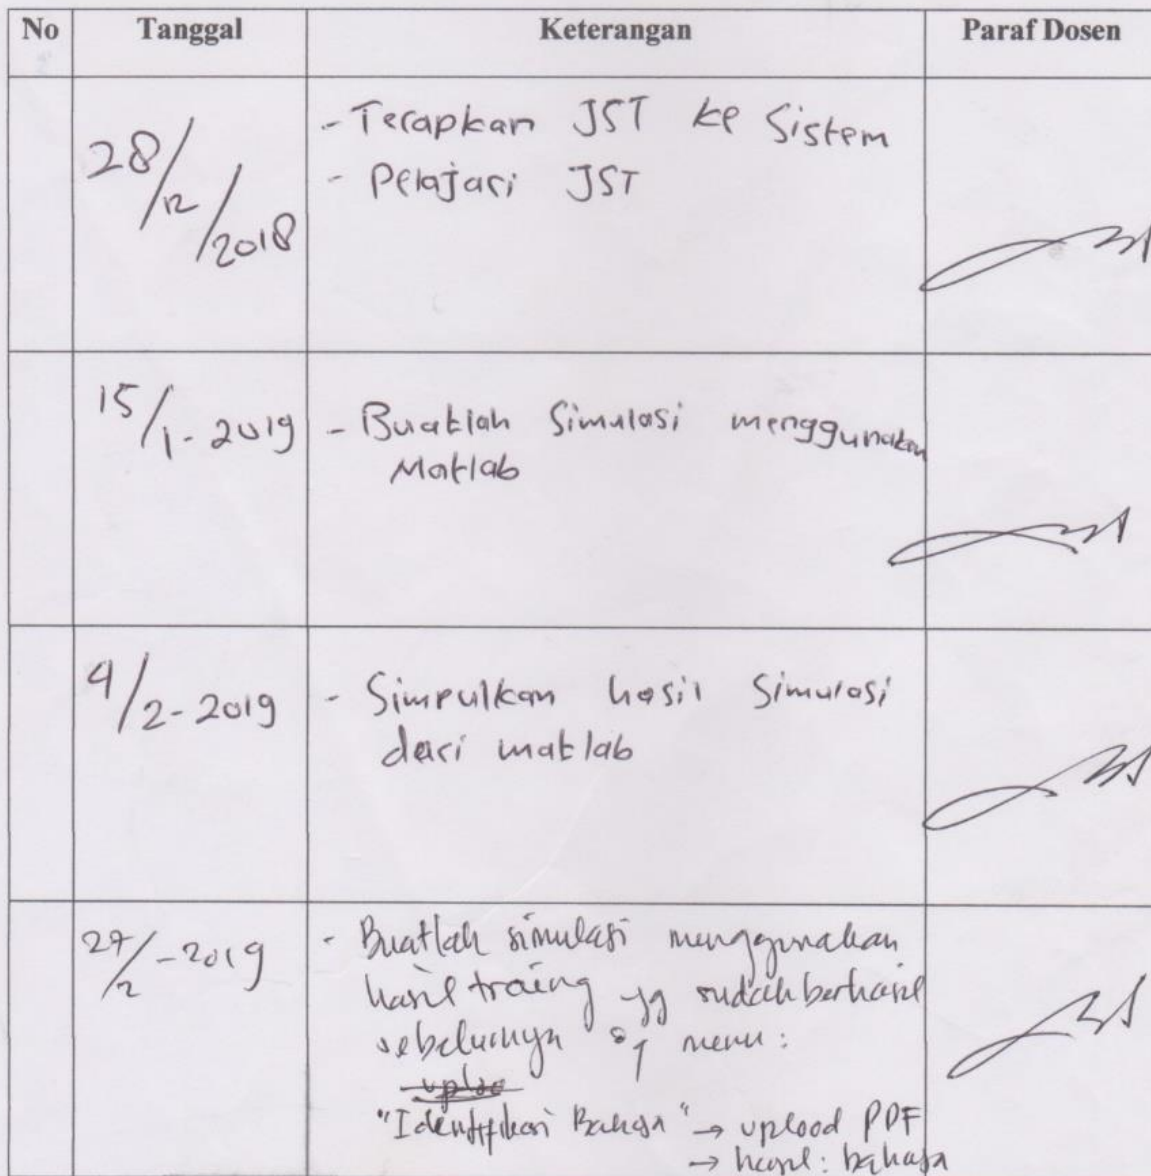 No Tanggal Keterangan Paraf Dosen
28/12/2018
- Terapkan JST ke Sistem
- Pelajari JST
15/1-2019
- Buatlah Simulasi menggunakan
Matlab
4/2-2019
- Simpulkan hasil Simulasi
dari matlab
27/2-2019
- Buatlah simulasi menggunakan
hasil traing yg sudah berhasil
sebelumnya menu:
"Identifikasi Bahasa" → upload PDF
→ hasil: bahasa